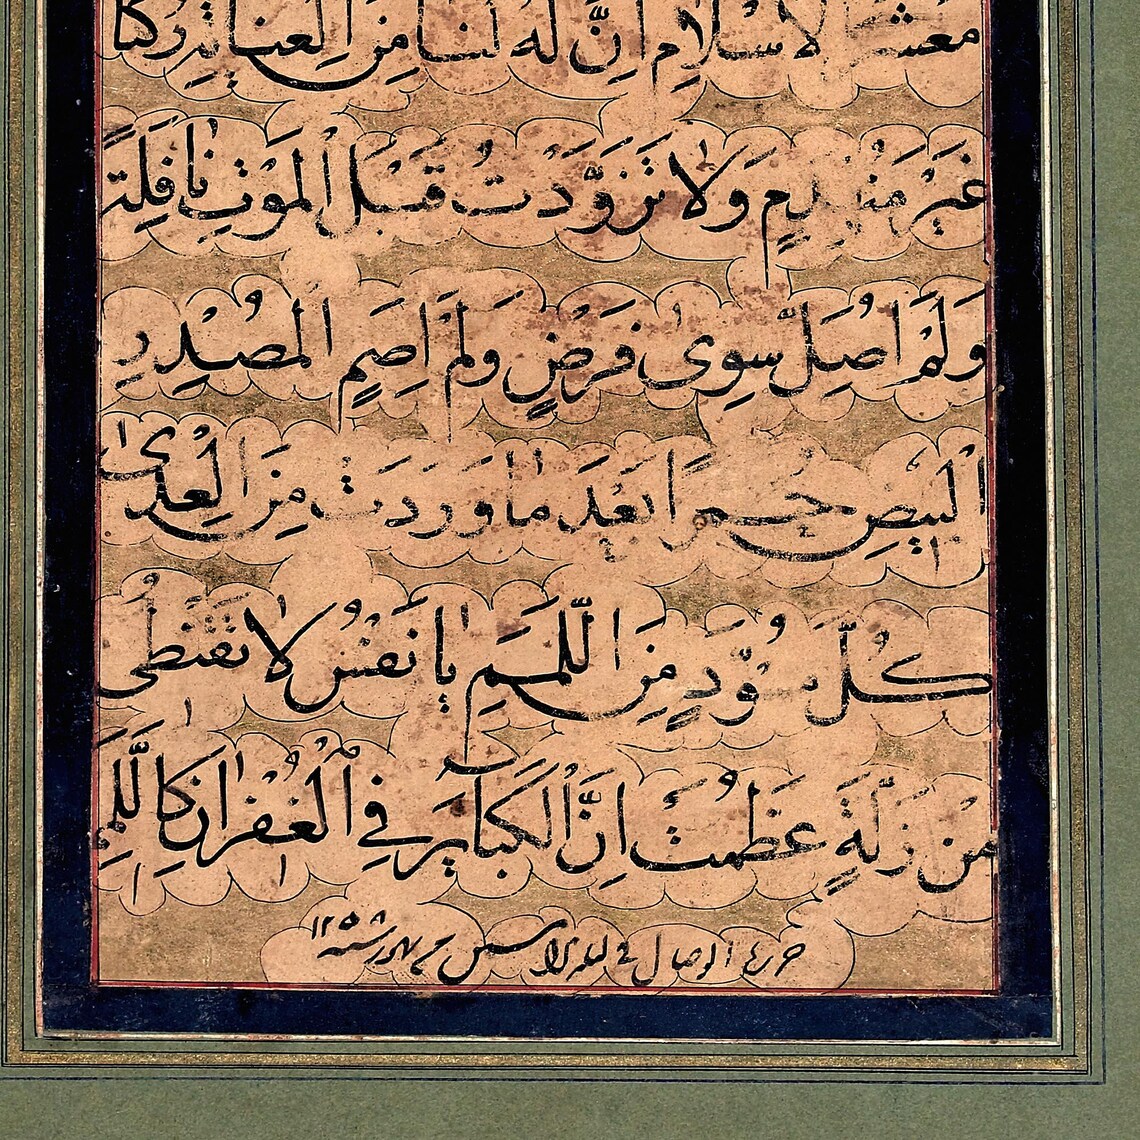 معشر الاسلام اِنَّ لَهُ لَنا مِنَ العِنايَةِ رُكنًا
غَيْرَ مُنْهَدِمٍ وَلا تَزَوَّدْتُ قَبْلَ الْمَوْتِ نافِلَةً
وَلَمْ اُصَلِّ سِوى فَرْضٍ وَلَمْ اَصُمِ المُصْدِرِ
الْبِيضِ حُمْرًا بَعْدَ ما وَرَدَتْ مِنَ الْعِدى
كُلَّ مُسْوَدٍّ مِنَ اللِّمَمِ يا نَفْسُ لا تَقْنَطى
مِنْ زَلَّةٍ عَظُمَتْ اِنَّ الْكَبايِرَ فِي الْغُفْرانِ كَاللَّمَمِ
حرره الوصال فی لیله الا محرم ۱۲۵۸